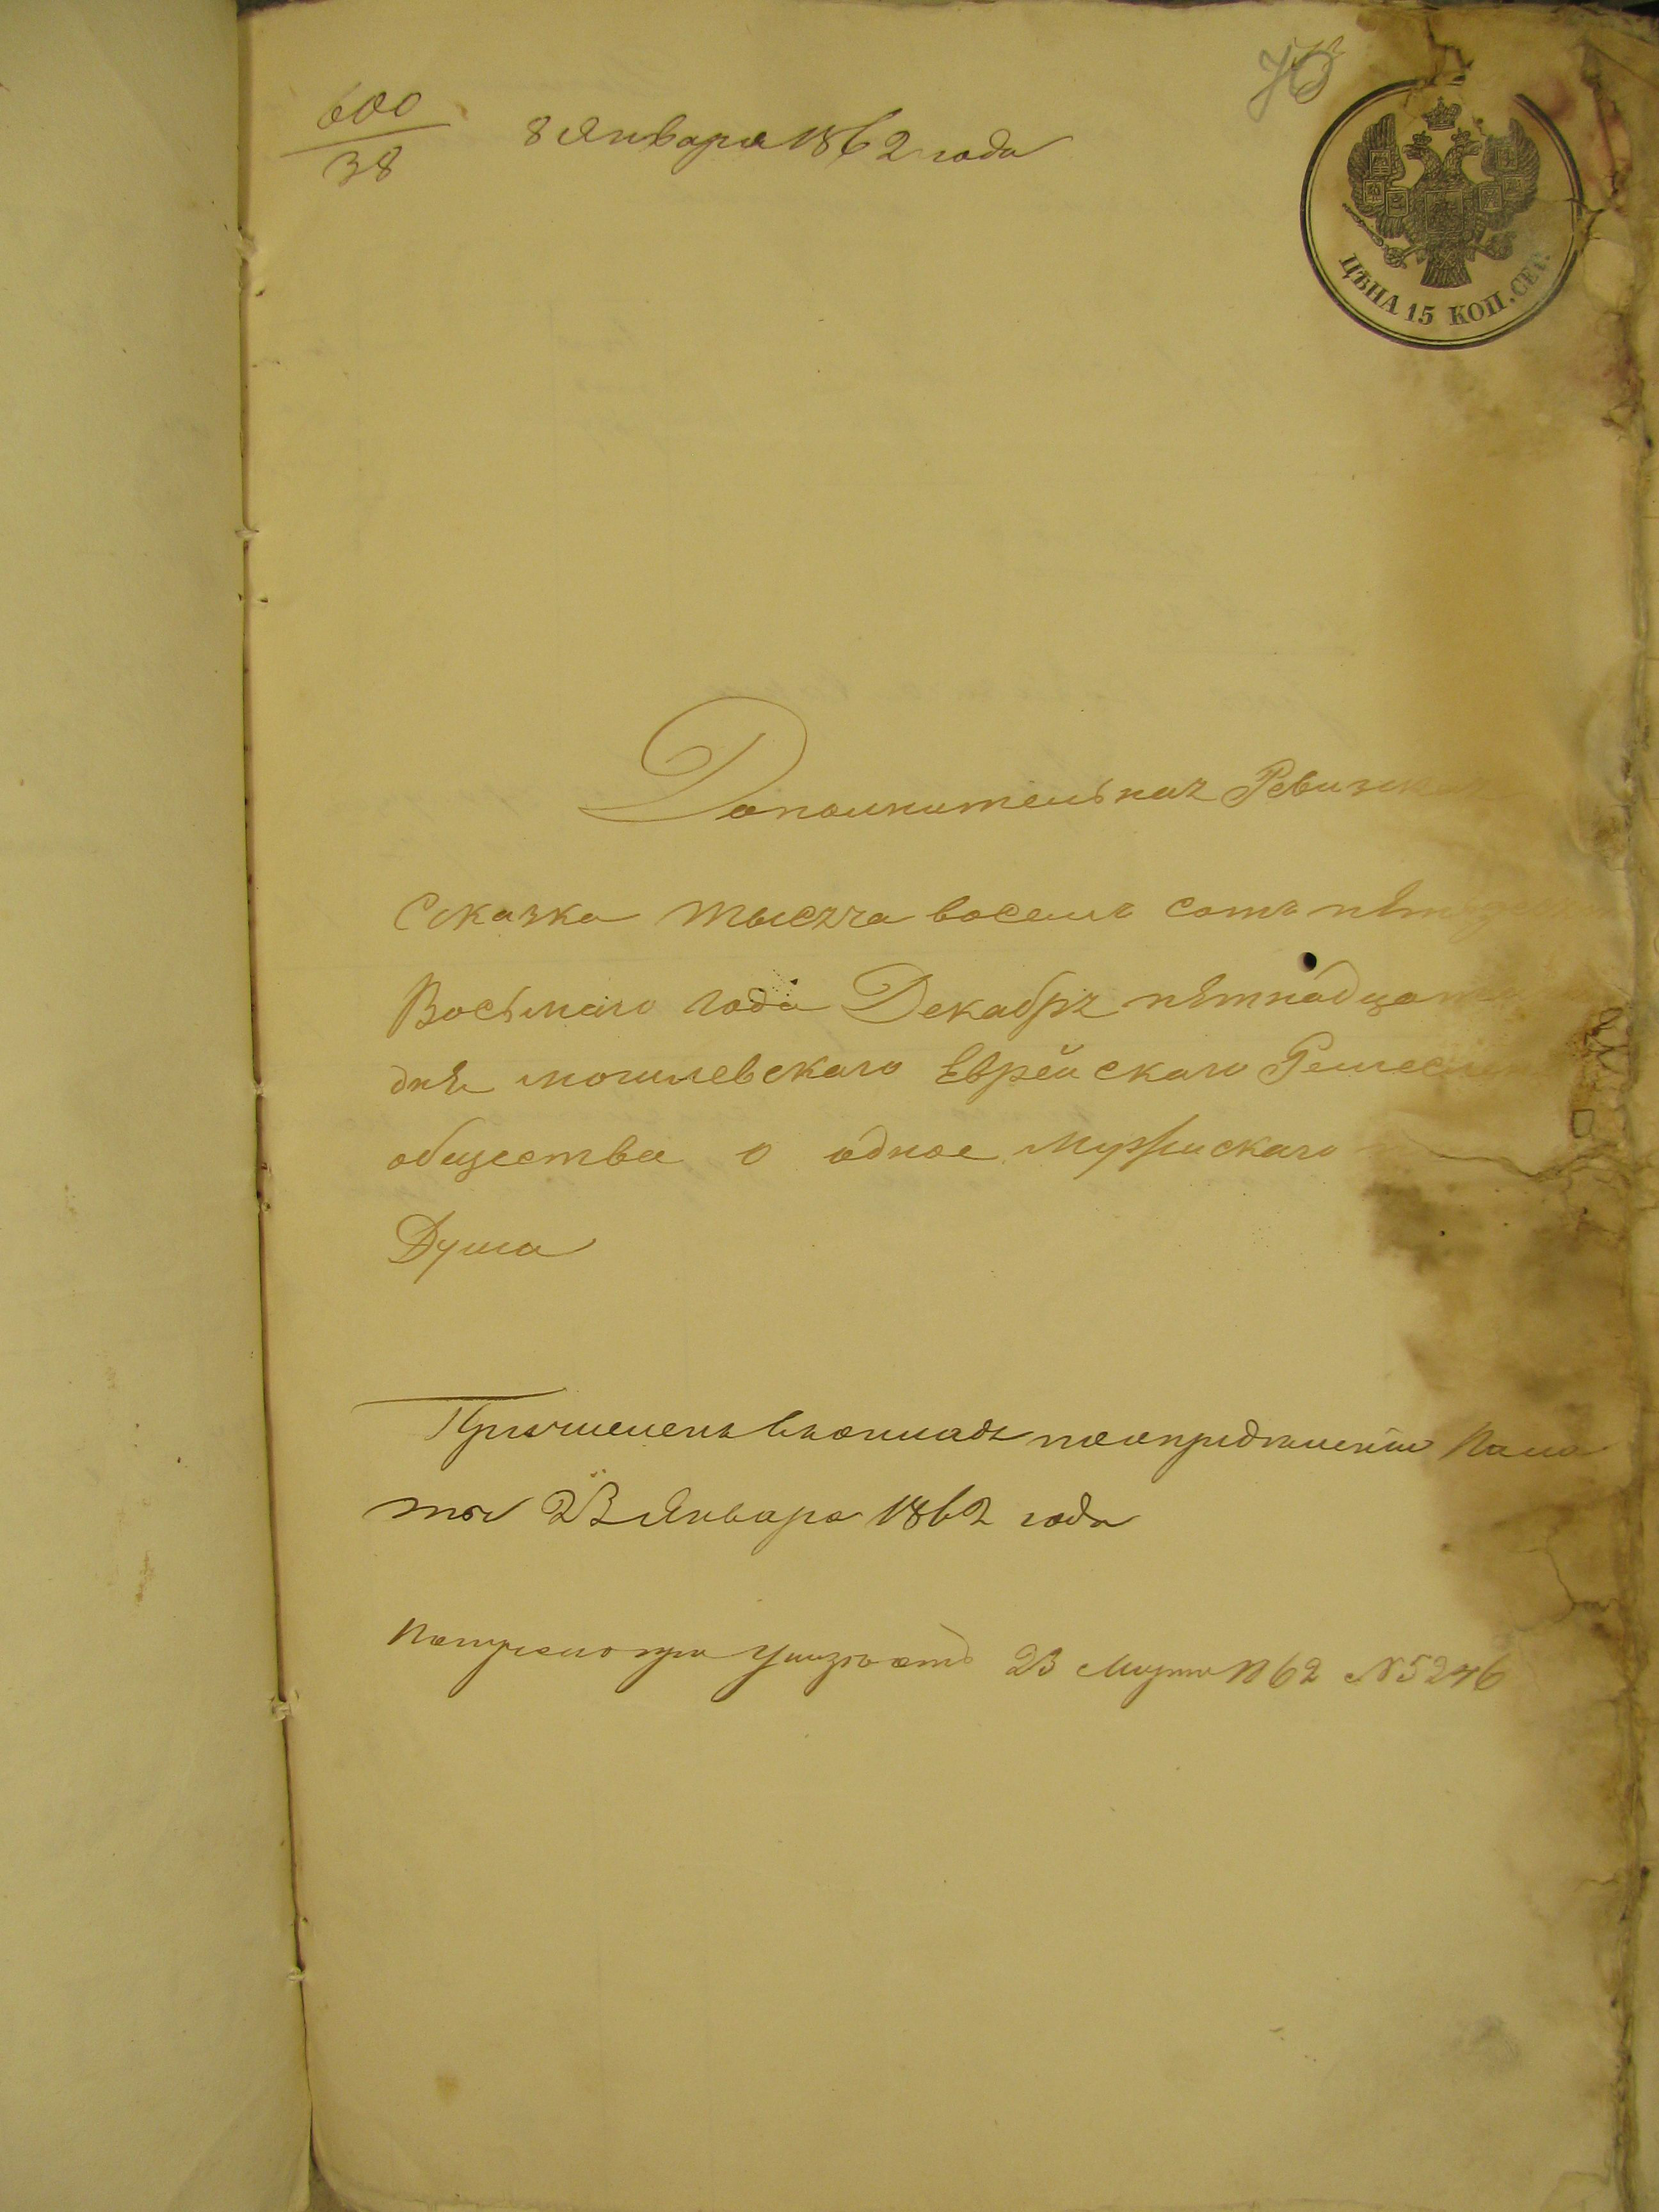 600
38
8 Января 1862 года
ЦѢНА 15 КОП. СЕР.
Дополнительная Ревизская
Сказка тысяча восемь сотъ пять
Восьмаго года Декабря пятнадцатаго
дня могилевскаго Еврейскаго Ремеслен
общества о одное Мужискаго
Душа
Причисленъ въ окладъ по опредѣленію Пала
ты 23 Января 1862 года
23 Марта 1862 №5246